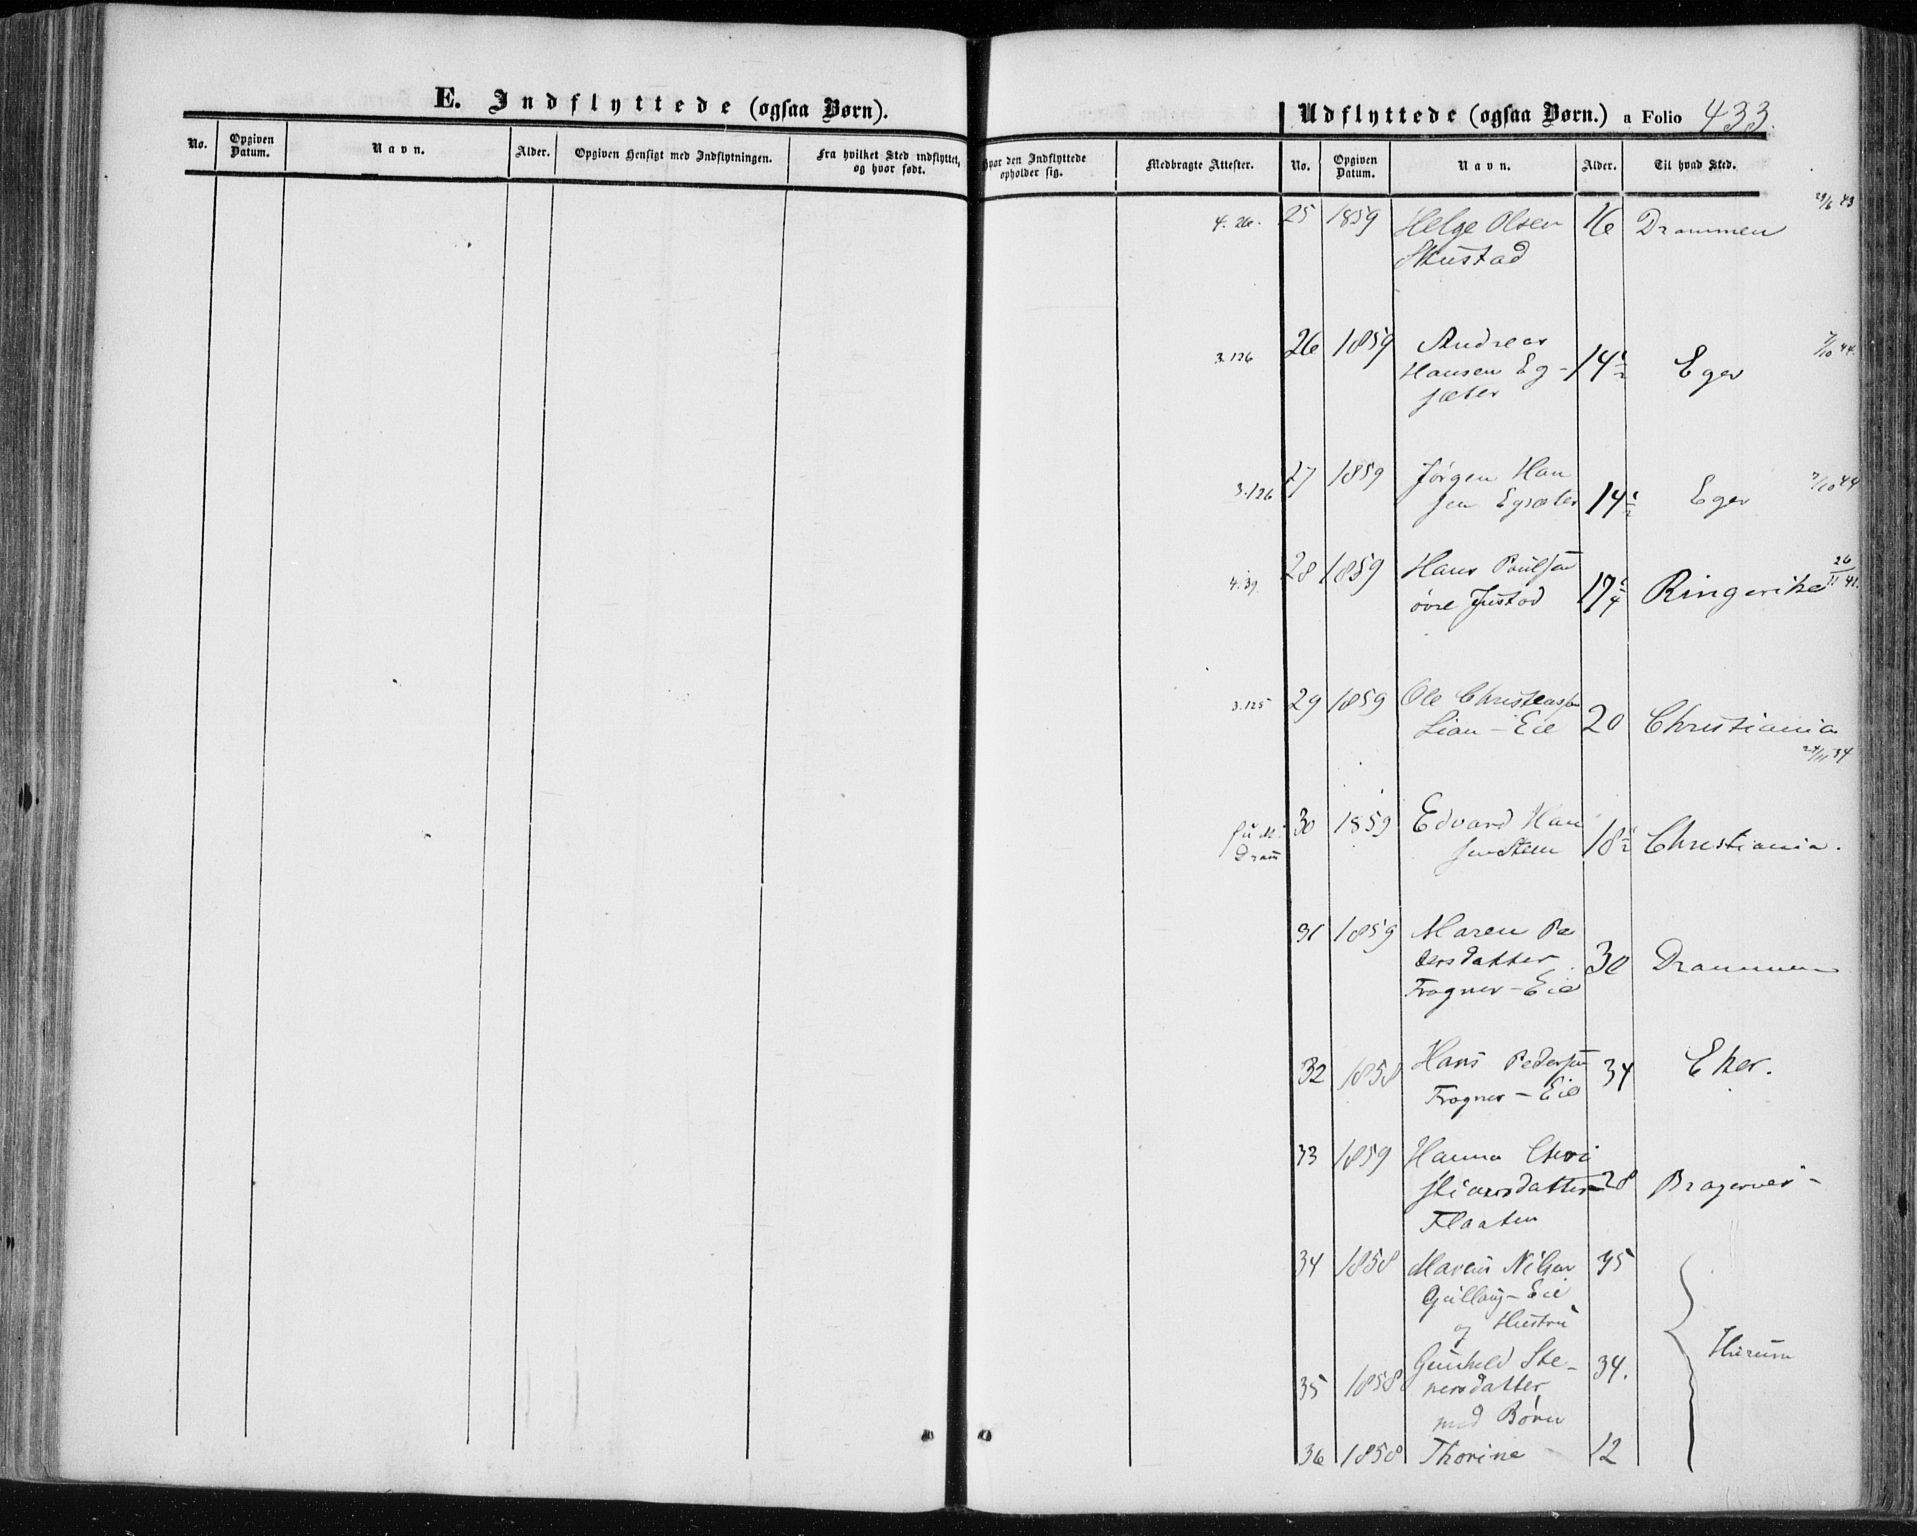 E. Indflyttede (ogsaa Børn).
No.
Opgiven Datum.
Navn.
Alder.
Opgiven Hensigt med Indflytningen.
Fra hvilket Sted indflyttet, og hvor født.
Hvor den Indflyttede opholder sig.
Medbragte Attester.
Udflyttede (ogsaa Børn.) a Folio 433.
No.
Opgiven Datum.
Navn.
Alder.
Til hvad Sted.
4. 26. 25 1859 Helge Olsen 16 Drammen 29/6 43
Skustad
3.126 26 1859 Andreas 7/10 44.
Hansen Eg- 14 1/2 Eger
sæter
3.126 27 1859 Jörgen Han 7/10 44
sen Egsæter 14 1/2 Eger
4.39. 28 1859 Hans Poulsen 26/11 41.
øvre Justad 17 1/4 Ringerike
3.125 29 1859 Ole Christensen
Lian-Eie 20 Christiania
24/11 34
30 1859 Edvard Han
Dram sen Steen 18 1/2 Christiania.
31 1859 Maren Pe
dersdatter 30 Drammen
Frogner-Eie
32 1858 Hans Pedersen 34 Eker.
Frogner-Eie
33 1859 Hanna Chri
stiansdatter 28 Bragernes-
Flaaten
34 1858 Maren Nilsen 35
Gullaug-Eie
og Hustru
Hurum
35 1858 Gunhild Ste- 34.
nersdatter
med Børn
36 1858 Thorine 12